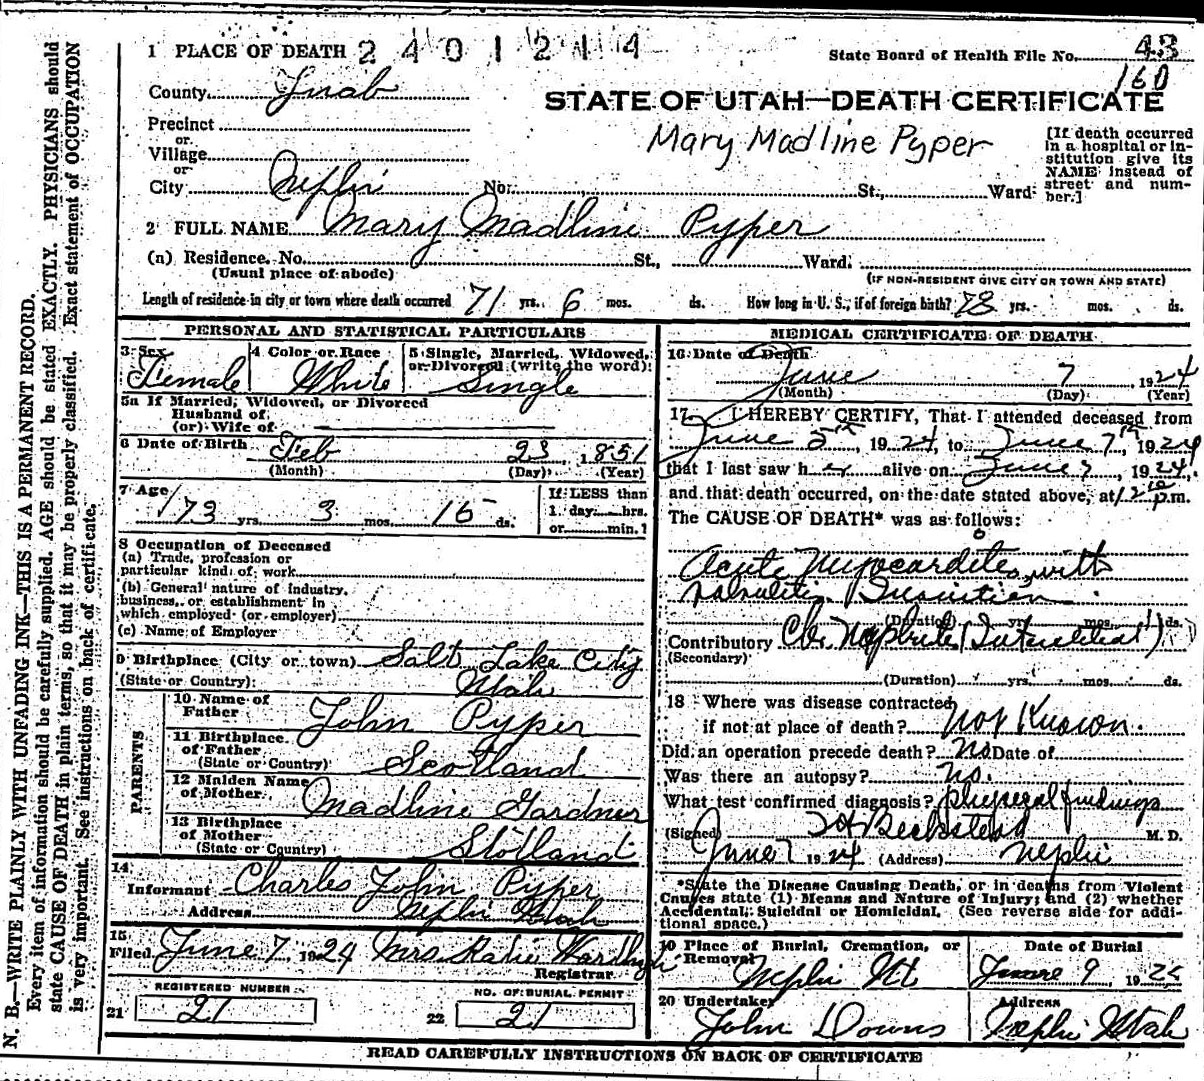 1 PLACE OF DEATH 2401214
State Board of Health File No. 43
160
County Juab
STATE OF UTAH—DEATH CERTIFICATE
Precinct
or
Village
or
City Nephi No. St., Ward
Mary Madline Pyper
[If death occurred
in a hospital or in-
stitution give its
NAME instead of
street and num-
ber.]
2 FULL NAME Mary Madline Pyper
(a) Residence. No. St., Ward.
(Usual place of abode)
(IF NON-RESIDENT GIVE CITY OR TOWN AND STATE)
Length of residence in city or town where death occurred 71 yrs. 6 mos. ds. How long in U. S., if of foreign birth? 73 yrs. mos. ds.
PERSONAL AND STATISTICAL PARTICULARS
3 Sex 4 Color or Race 5 Single, Married, Widowed,
or Divorced (write the word)
Female White Single
5a If Married, Widowed, or Divorced
Husband of
(or) Wife of
6 Date of Birth Feb 23 1851
(Month) (Day) (Year)
7 Age 73 yrs. 3 mos. 15 ds.
If LESS than
1 day hrs.
or min.
8 Occupation of Deceased
(a) Trade, profession or
particular kind of work
(b) General nature of industry,
business, or establishment in
which employed (or employer)
(c) Name of Employer
9 Birthplace (City or town) Salt Lake City
(State or Country) Utah
PARENTS
10 Name of
Father John Pyper
11 Birthplace
of Father
(State or Country) Scotland
12 Maiden Name
of Mother Madline Gardner
13 Birthplace
of Mother
(State or Country) Stotland
14
Informant Charles John Pyper
Address Nephi Utah
15
Filed June 7 1924 Mrs. Katie
Registrar
REGISTERED NUMBER
21 21
NO. OF BURIAL PERMIT
22 21
MEDICAL CERTIFICATE OF DEATH
16 Date of Death
June 7, 1924
(Month) (Day) (Year)
17 I HEREBY CERTIFY, That I attended deceased from
June 5th, 1924, to June 7th, 1924
that I last saw her alive on June 7, 1924.
and that death occurred, on the date stated above, at 12 10 p.m.
The CAUSE OF DEATH* was as follows:
Acute Myocardites with
(Duration) yrs. mos. ds.
Contributory Ch. Nephrites (Intersitial)
(Secondary)
(Duration) yrs. mos. ds.
18 Where was disease contracted
if not at place of death? not Known.
Did an operation precede death? no Date of
Was there an autopsy? no.
What test confirmed diagnosis? physical findings
(Signed) Beckstead M. D.
June 7 1924 (Address) Nephi
*State the Disease Causing Death, or in deaths from Violent
Causes state (1) Means and Nature of Injury; and (2) whether
Accidental, Suicidal or Homicidal. (See reverse side for addi-
tional space.)
19 Place of Burial, Cremation, or
Removal
Date of Burial
Nephi Ut June 9, 1924
20 Undertaker Address
John Downs Nephi Utah
READ CAREFULLY INSTRUCTIONS ON BACK OF CERTIFICATE
N. B.—WRITE PLAINLY WITH UNFADING INK—THIS IS A PERMANENT RECORD.
Every item of information should be carefully supplied. AGE should be stated EXACTLY. PHYSICIANS should
state CAUSE OF DEATH in plain terms, so that it may be properly classified. Exact statement of OCCUPATION
is very important. See instructions on back of certificate.